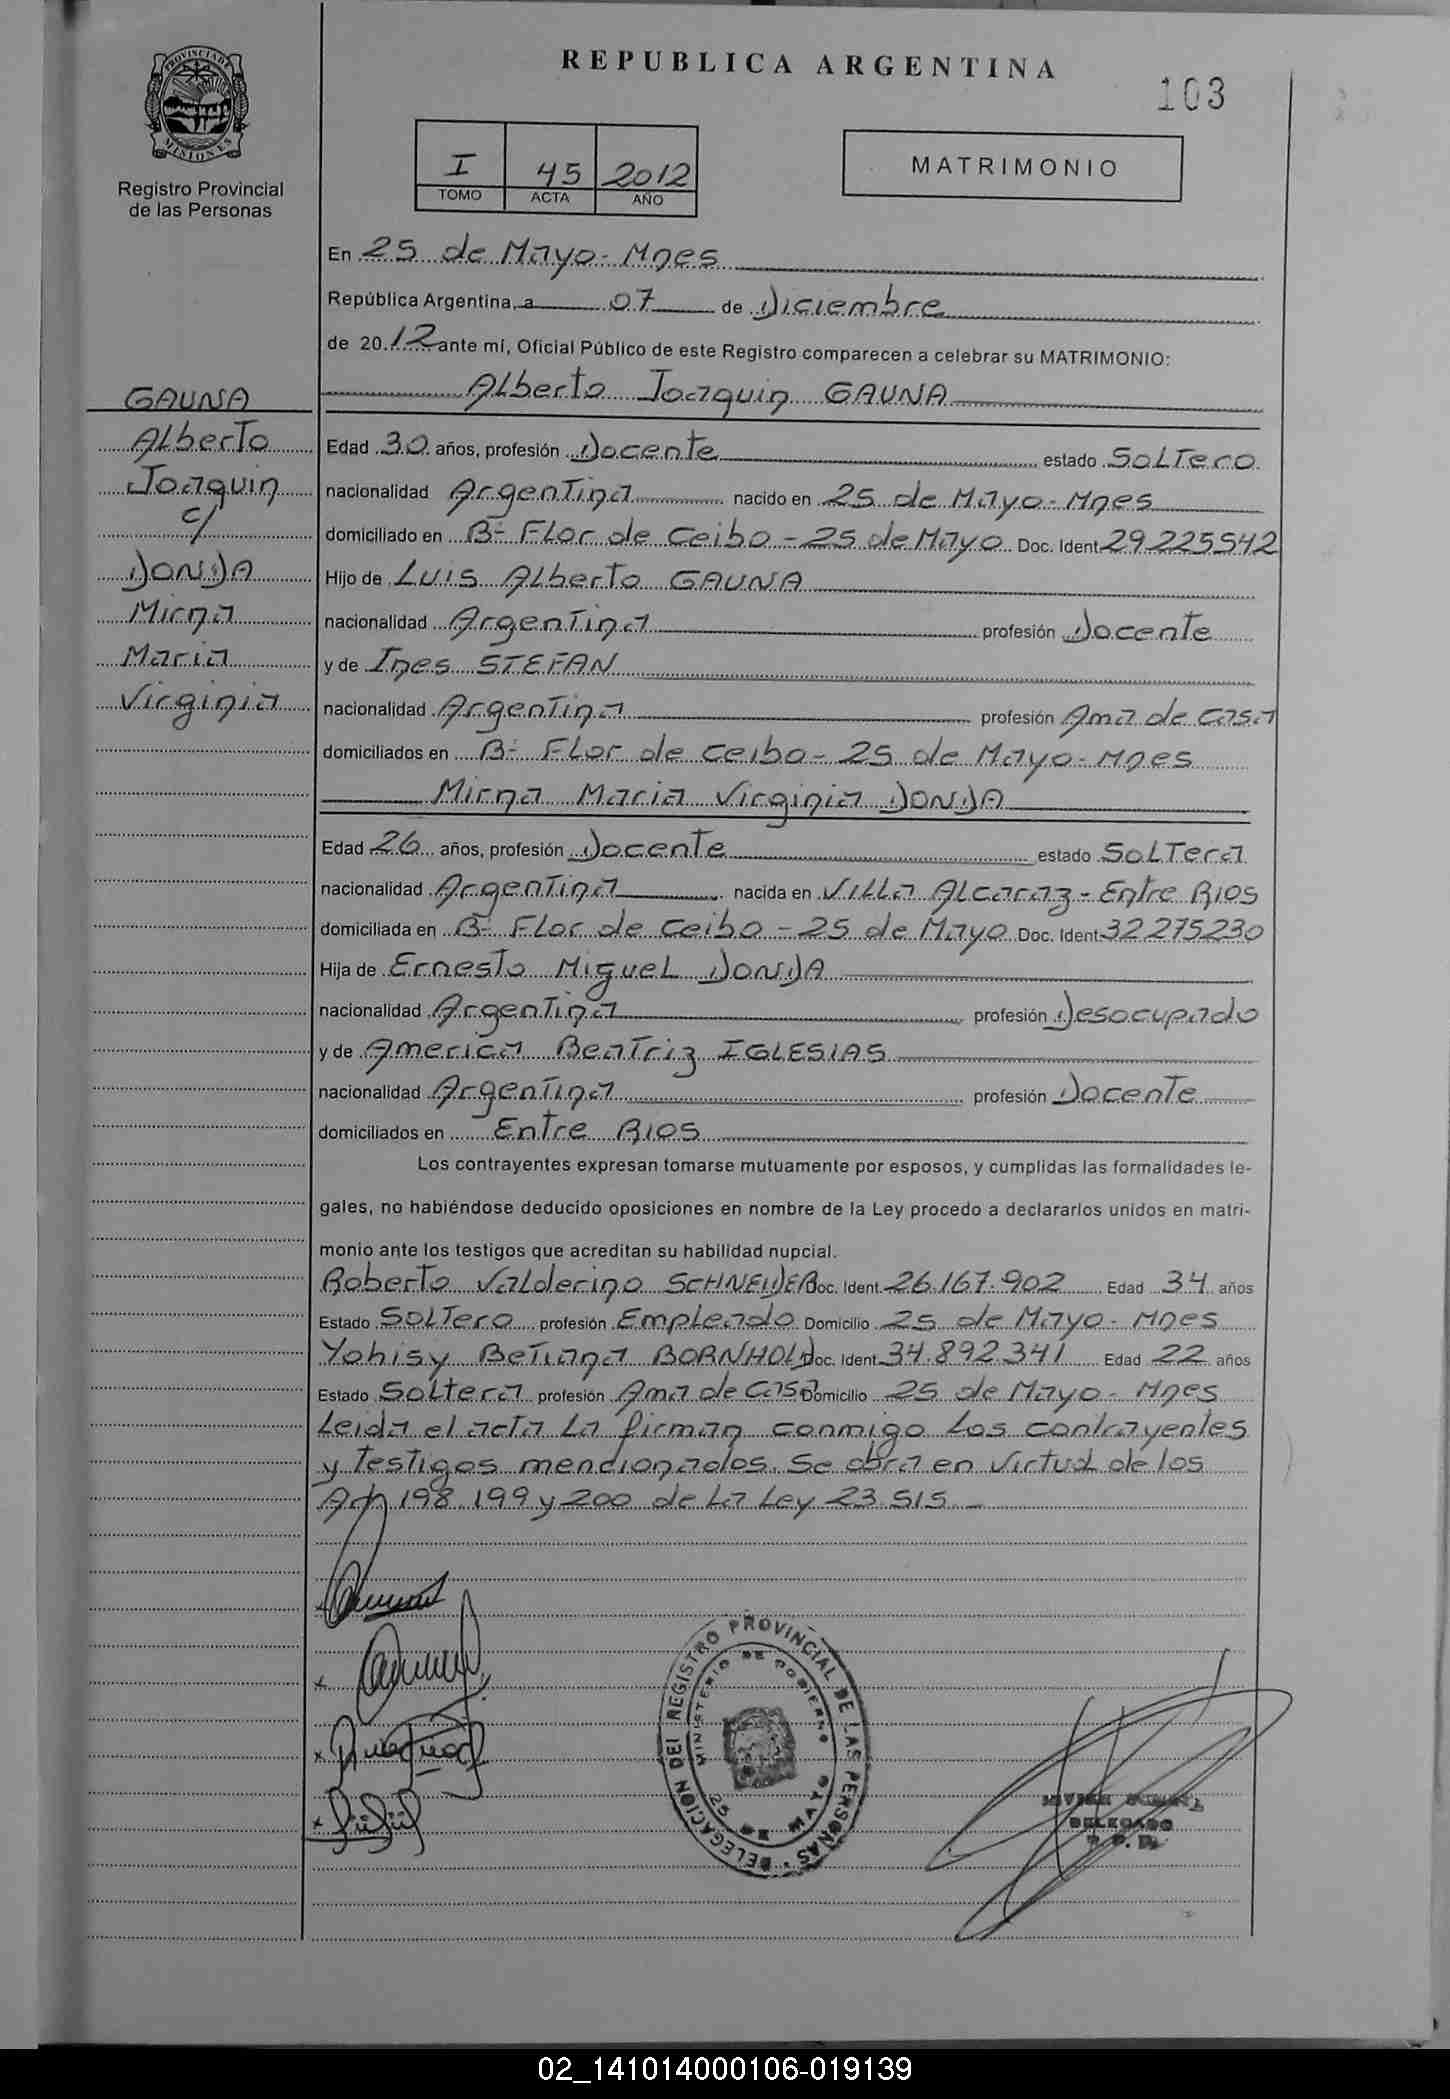 REPUBLICA ARGENTINA
103
PROVINCIA DE MISIONES
Registro Provincial
de las Personas
I 45 2012
TOMO ACTA AÑO
MATRIMONIO
En 25 de Mayo - Mnes
República Argentina, a 07 de Diciembre
de 2012 ante mí, Oficial Público de este Registro comparecen a celebrar su MATRIMONIO:
Alberto Joaquin GAUNA
GAUNA
Alberto
Joaquin
c/
DONDA
Mirna
Maria
Virginia
Edad 30 años, profesión Docente estado Soltero
nacionalidad Argentina nacido en 25 de Mayo - Mnes
domiciliado en B- Flor de Ceibo - 25 de Mayo Doc. Ident 29225542
Hijo de Luis Alberto GAUNA
nacionalidad Argentina profesión Docente
y de Ines STEFAN
nacionalidad Argentina profesión Ama de casa
domiciliados en B- Flor de Ceibo - 25 de Mayo - Mnes
Mirna Maria Virginia DONDA
Edad 26 años, profesión Docente estado Soltera
nacionalidad Argentina nacida en Villa Alcaraz - Entre Rios
domiciliada en B- Flor de Ceibo - 25 de Mayo Doc. Ident 32275230
Hija de Ernesto Miguel DONDA
nacionalidad Argentina profesión Desocupado
y de America Beatriz IGLESIAS
nacionalidad Argentina profesión Docente
domiciliados en Entre Rios
Los contrayentes expresan tomarse mutuamente por esposos, y cumplidas las formalidades le-
gales, no habiéndose deducido oposiciones en nombre de la Ley procedo a declararlos unidos en matri-
monio ante los testigos que acreditan su habilidad nupcial.
Roberto Valderino SCHNEIDER Doc. Ident. 26.167.902 Edad 34 años
Estado Soltero profesión Empleado Domicilio 25 de Mayo - Mnes
Yohisy Betiana BORNHOLD Doc. Ident. 34.892.341 Edad 22 años
Estado Soltera profesión Ama de Casa Domicilio 25 de Mayo - Mnes
Leida el acta la firman conmigo los contrayentes
y testigos mencionados. Se obra en virtud de los
Art 198.199 y 200 de la Ley 23.515.-
DELEGACION DEL REGISTRO PROVINCIAL DE LAS PERSONAS
MINISTERIO DE GOBIERNO
25 DE MAYO
DELEGADO
02_141014000106-019139